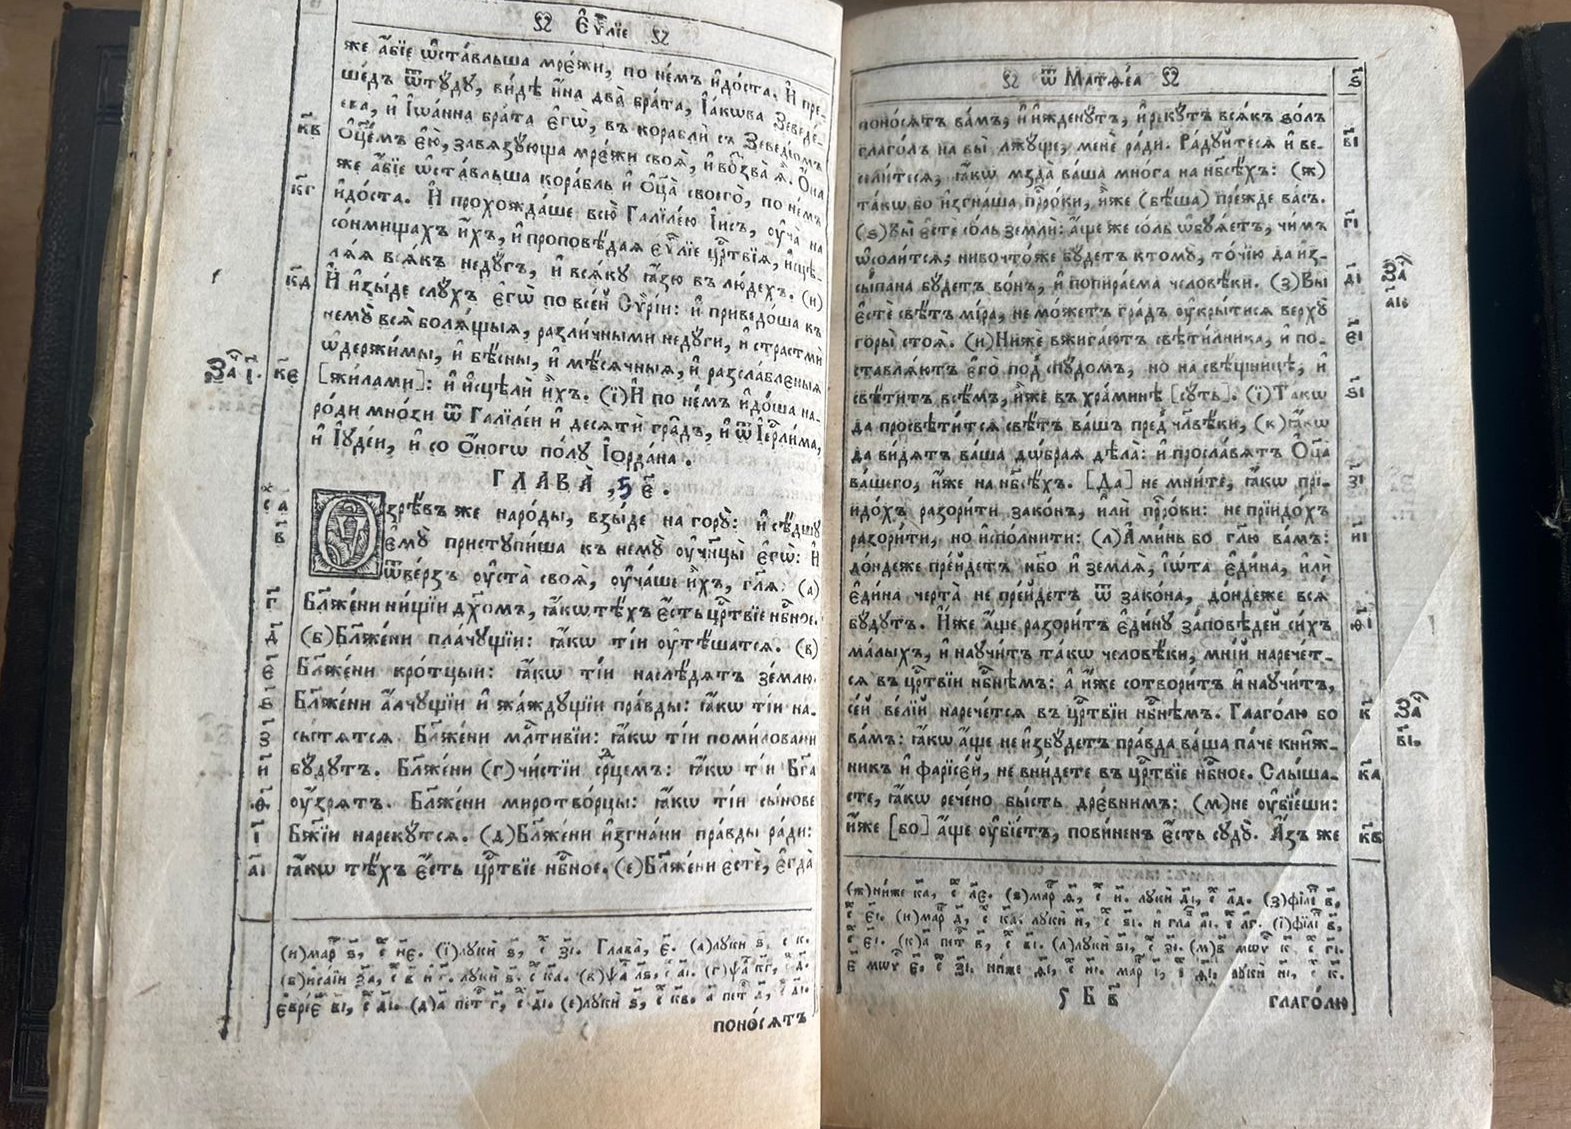 Ѿ Є҆ѵⷢ҇лїе Ѿ
же а҆́бїе ѡ҆ста́вльша мрє́жи, по не́мъ и҆до́ста. И҆ пре-
ше́дъ ѿтꙋ́дꙋ, ви́дѣ и҆́на два̀ бра́та, І҆а́кѡва Зеведе́-
ева, и҆ І҆ѡа́нна бра́та є҆гѡ̀, въ кораблѝ съ Зеведе́омъ
Ѻ҆ц҃е́мъ є҆ю̀, завѧзꙋ́юща мрє́жи своѧ̀, и҆ воззва̀ ѧ҆̀. Ѻ҆́на
же а҆́бїе ѡ҆ста́вльша кора́бль и҆ Ѻ҆ц҃а̀ своего̀, по не́мъ
и҆до́ста. И҆ прохожда́ше всю̀ Галїле́ю І҆и҃съ, ᲂу҆ча̀ на
со́нмищахъ и҆́хъ, и҆ проповѣ́даѧ є҆ѵⷢ҇лїе црⷭ҇твїѧ, и҆сцѣ-
лѧ́ѧ всѧ́къ недꙋ́гъ, и҆ всѧ́кꙋ ꙗ҆́зю въ лю́дехъ. (и)
И҆ и҆зы́де слꙋ́хъ є҆гѡ̀ по все́й Сѷрі́и: и҆ приведо́ша къ
немꙋ̀ всѧ̀ болѧ́щыѧ, разли́чными недꙋ́ги, и҆ страстмѝ
ѡ҆держи́мы, и҆ бѣ́сны, и҆ мѣ́сѧчныѧ, и҆ разсла́бленыѧ
[жи́лами]: и҆ и҆сцѣлѝ и҆̀хъ. (ї) И҆ по не́мъ и҆до́ша на-
ро́ди мно́зи ѿ Галїле́и и҆ десѧтѝ гра̑дъ, и҆ ѿ І҆ерⷭ҇ли́ма,
и҆ І҆ꙋде́и, и҆ со ѻ҆́ногѡ по́лꙋ І҆ѻрда́на.
ГЛАВА̀, 5 є҃.
Оу҆зрѣ́въ же наро́ды, взы́де на горꙋ̀: и҆ сѣ́дшꙋ
є҆мꙋ̀ пристꙋпи́ша къ немꙋ̀ ᲂу҆чн҃цы̀ є҆гѡ̀: И҆
ѿве́рзъ ᲂу҆ста̀ своѧ̀, ᲂу҆ча́ше и҆́хъ, гл҃ѧ: (а)
Бл҃же́ни ни́щїи дх҃омъ, ꙗ҆́кѡ тѣ́хъ є҆́сть црⷭ҇твїе нбⷭ҇ное.
(б) Бл҃же́ни пла́чꙋщїи: ꙗ҆́кѡ ті́и ᲂу҆тѣ́шатсѧ. (в)
Бл҃же́ни кро́тцыи: ꙗ҆́кѡ ті́и наслѣ́дѧтъ зе́млю.
Бл҃же́ни а҆́лчꙋщїи и҆ жа́ждꙋщїи пра́вды: ꙗ҆́кѡ ті́и на-
сы́тѧтсѧ. Бл҃же́ни млⷭ҇тивїи: ꙗ҆́кѡ ті́и поми́ловани
бꙋ́дꙋтъ. Бл҃же́ни (г) чи́стїи срⷣцемъ: ꙗ҆́кѡ ті́и Бг҃а
ᲂу҆́зрѧтъ. Бл҃же́ни миротво́рцы: ꙗ҆́кѡ ті́и сы́нове
Бж҃їи нарекꙋ́тсѧ. (д) Бл҃же́ни и҆згна́ни пра́вды ра́ди:
ꙗ҆́кѡ тѣ́хъ є҆́сть црⷭ҇твїе нбⷭ҇ное. (е) Бл҃же́ни є҆стѐ, є҆гда̀
к҃в
к҃г
к҃д
За҄ і҃.
к҃є
а҃
в҃
г҃
д҃
є҃
ѕ҃
з҃
и҃
ѳ҃
і҃
а҃і
(и) мар ѕ҃, с н҃є. (ї) лꙋки ѕ҃, с з҃і. Глава̀, є҃. (а) лꙋки ѕ҃, с к.
(б) и҆са́їи ѯ҃а, с в҃
поно́сѧтъ
Ѿ ѿ Матѳе́а Ѿ
ѕ҃
поно́сѧтъ ва́мъ, и҆ и҆жденꙋ́тъ, и҆ рекꙋ́тъ всѧ́къ ѕо́лъ
глаго́лъ на вы̀ лжꙋ́ще, менє̀ ра́ди. Ра́дꙋйтесѧ и҆ ве-
сели́тесѧ, ꙗ҆́кѡ мзда̀ ва́ша мно́га на нб҃сѣ́хъ: (ж)
та́кѡ бо и҆згна́ша прⷪ҇ро́ки, и҆̀же (бѣ́ша) пре́жде ва́съ.
(ѕ) Вы̀ є҆стѐ со́ль землѝ: а҆́ще же со́ль ѡ҆бꙋѧ́етъ, чи́мъ
ѡ҆соли́тсѧ; ничто́же бꙋ́детъ ктомꙋ̀, то́чїю да и҆з-
сы́пана бꙋ́детъ во́нъ, и҆ попира́ема человѣ́ки. (з) Вы̀
є҆стѐ свѣ́тъ мі́ра, не мо́жетъ гра́дъ ᲂу҆кры́тисѧ верхꙋ̀
горы̀ стоѧ̀. (и) Ниже́ вжига́ютъ свѣти́лника, и҆ по-
ставлѧ́ютъ є҆го̀ под̾ спꙋ́домъ, но на свѣ́щницѣ, и҆
свѣ́титъ всѣ̑мъ, и҆̀же въ хра́минѣ [сꙋ́ть]. (ї) Та́кѡ
да просвѣти́тсѧ свѣ́тъ ва́шъ пред̾ чл҃вѣ́ки, (к) ꙗ҆́кѡ
да ви́дѧтъ ва́ша дѡ́браѧ дѣла̀: и҆ просла́вѧтъ Ѻ҆ц҃а̀
ва́шего, и҆́же на нб҃сѣ́хъ. [Да] не мни́те, ꙗ҆́кѡ прї-
идо́хъ разори́ти зако́нъ, и҆лѝ прⷪ҇ро́ки: не прїидо́хъ
разори́ти, но и҆спо́лнити: (л) А҆ми́нь бо гл҃ю ва́мъ:
до́ндеже пре́йдетъ нб҃о и҆ землѧ̀, і҆ѡ́та є҆ди́на, и҆лѝ
є҆ди́на черта̀ не пре́йдетъ ѿ зако́на, до́ндеже всѧ̀
бꙋ́дꙋтъ. И҆́же а҆́ще разори́тъ є҆ди́нꙋ за́повѣдей си́хъ
ма́лыхъ, и҆ наꙋчи́тъ та́кѡ человѣ́ки, мні́й нарече́т-
сѧ въ црⷭ҇твїи нбⷭ҇нѣмъ: а҆ и҆́же сотвори́тъ и҆ наꙋчи́тъ,
се́й ве́лїй нарече́тсѧ въ црⷭ҇твїи нбⷭ҇нѣмъ. Глаго́лю бо
ва́мъ: ꙗ҆́кѡ а҆́ще не и҆збꙋ́детъ пра́вда ва́ша па́че кни́ж-
никъ и҆ фарїсе́й, не вни́дете въ црⷭ҇твїе нбⷭ҇ное. Слы́ша-
сте, ꙗ҆́кѡ рече́но бы́сть дре́внимъ: (м) не ᲂу҆бїе́ши:
и҆́же [бо] а҆́ще ᲂу҆бїе́тъ, пови́ненъ є҆́сть сꙋдꙋ̀. А҆́зъ же
в҃і
г҃і
д҃і
За҄
а҃і.
є҃і
ѕ҃і
з҃і
и҃і
ѳ҃і
к҃
За҄
в҃і.
к҃а
к҃в
ѕ Б в҃
глаго́лю